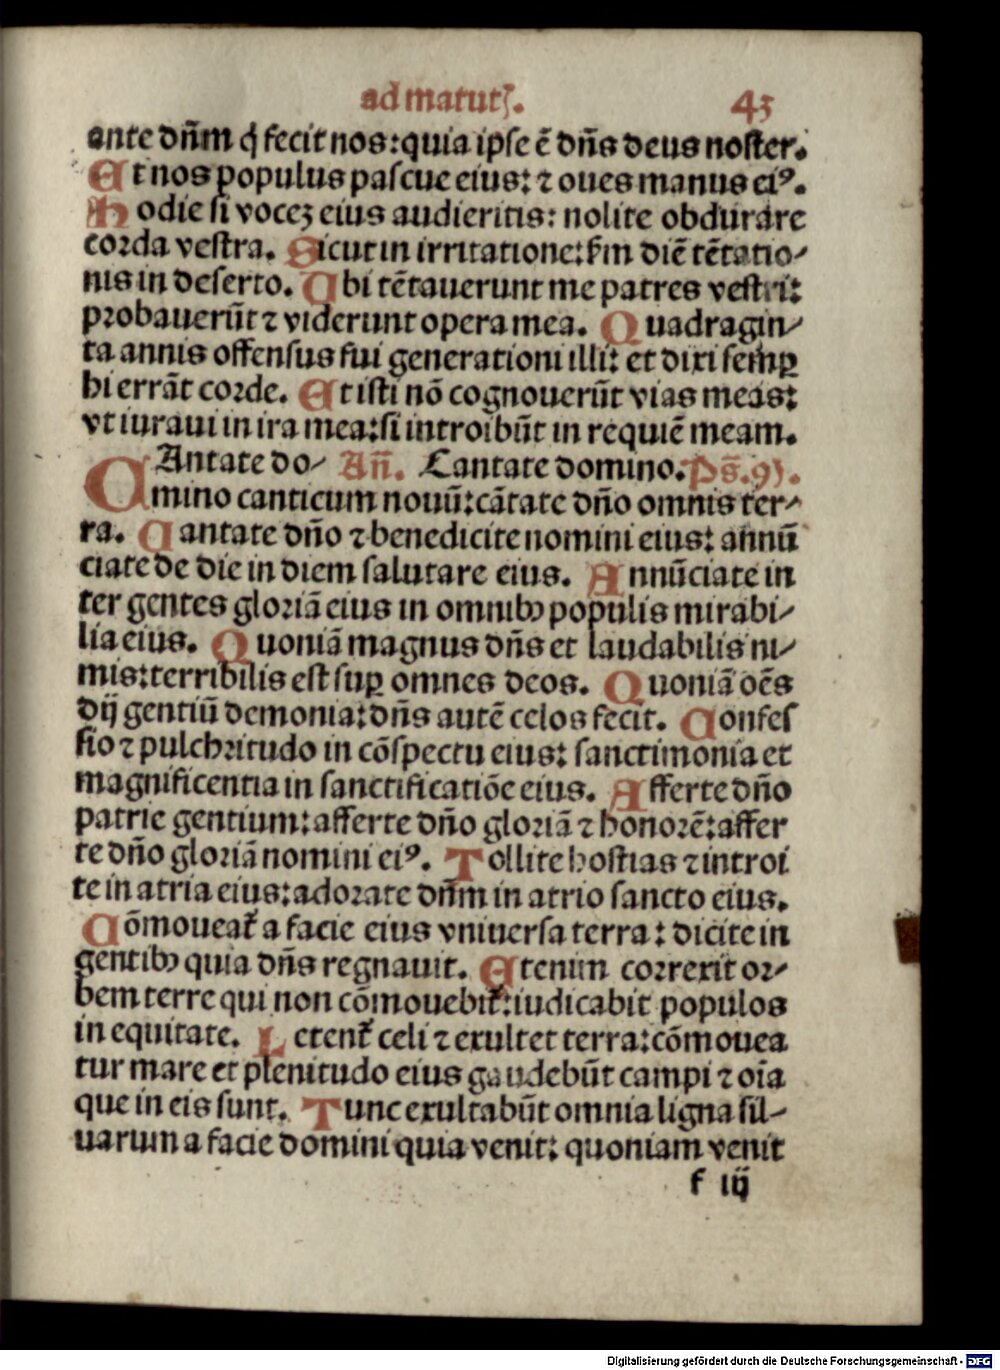 ad matutꝭ. 43
ante dn̄m q̇ fecit nos: quia ipse ē dn̄s deus noster.
Et nos populus pascue eius: ⁊ oues manus eiꝰ.
Hodie si voceꝫ eius audieritis: nolite obdurare
corda vestra. Sicut in irritatione: ẜm diē tētatio⸗
nis in deserto. Ubi tētauerunt me patres vestri:
probauerūt ⁊ viderunt opera mea. Quadragin⸗
ta annis offensus fui generationi illi: et dixi semꝑ
hi errāt corde. Et isti nō cognouerūt vias meas:
vt iuraui in ira mea: si introibūt in requiē meam.
CAntate do⸗ Añ. Cantate domino. Ps̄. 95.
mino canticum nouū: cātate dn̄o omnis ter⸗
ra. Cantate dn̄o ⁊ benedicite nomini eius: annū
ciate de die in diem salutare eius. Annūciate in
ter gentes gloriā eius in omnibꝰ populis mirabi⸗
lia eius. Quoniā magnus dn̄s et laudabilis ni⸗
mis: terribilis est suꝑ omnes deos. Quoniā oēs
dij gentiū demonia: dn̄s autē celos fecit. Confes
sio ⁊ pulchritudo in cōspectu eius: sanctimonia et
magnificentia in sanctificatiōe eius. Afferte dn̄o
patrie gentium: afferte dn̄o gloriā ⁊ honorē: affer
te dn̄o gloriā nomini eiꝰ. Tollite hostias ⁊ introi
te in atria eius: adorate dn̄m in atrio sancto eius.
Cōmoueat᷑ a facie eius vniuersa terra: dicite in
gentibꝰ quia dn̄s regnauit. Etenim correxit or⸗
bem terre qui non cōmouebit᷑: iudicabit populos
in equitate. Letent᷑ celi ⁊ exultet terra: cōmouea
tur mare et plenitudo eius gaudebūt campi ⁊ oīa
que in eis sunt. Tunc exultabūt omnia ligna sil⸗
uarum a facie domini quia venit: quoniam venit
f iij
Digitalisierung gefördert durch die Deutsche Forschungsgemeinschaft - DFG